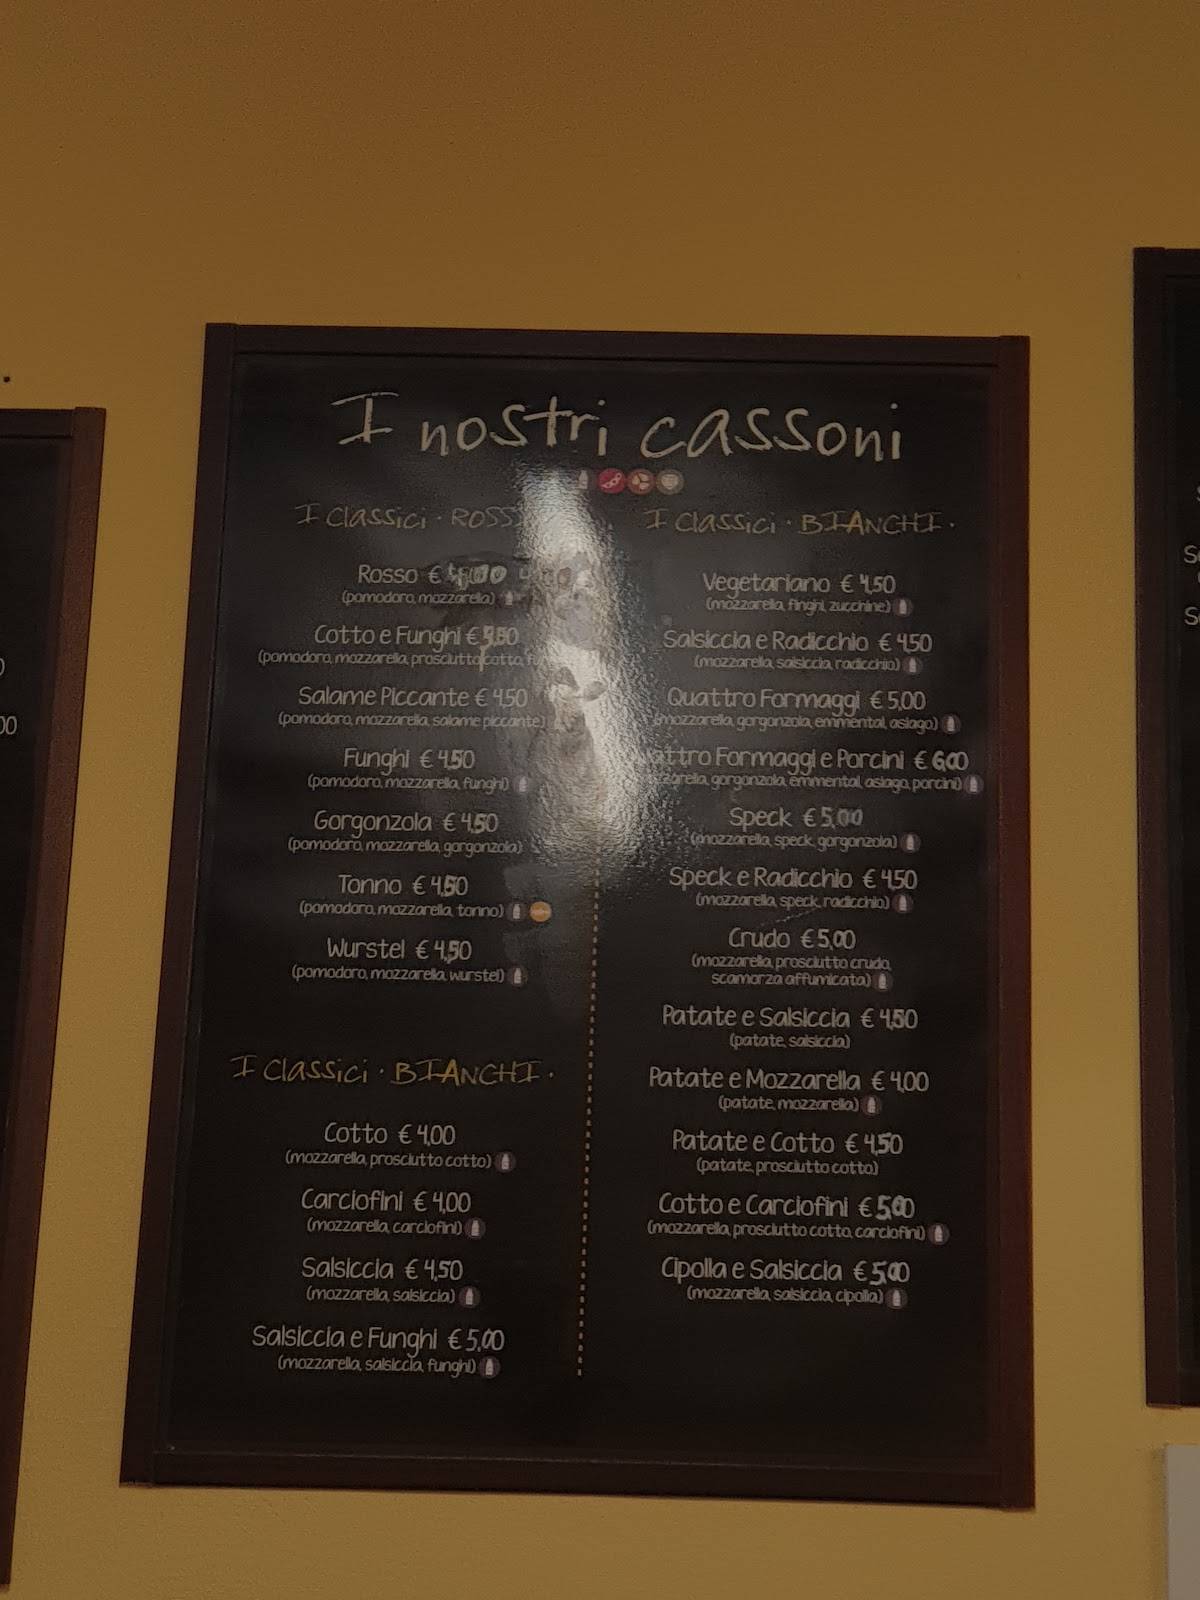 I nostri cassoni
I Classici · ROSSI
Rosso €
(pomodoro, mozzarella)
Cotto e Funghi € 5,50
(pomodoro, mozzarella, prosciutto cotto,
Salame Piccante € 4,50
(pomodoro, mozzarella, salame piccante)
Funghi € 4,50
(pomodoro, mozzarella, funghi)
Gorgonzola € 4,50
(pomodoro, mozzarella, gorgonzola)
Tonno € 4,50
(pomodoro, mozzarella, tonno)
Wurstel € 4,50
(pomodoro, mozzarella, wurstel)
I Classici · BIANCHI ·
Cotto € 4,00
(mozzarella, prosciutto cotto)
Carciofini € 4,00
(mozzarella, carciofini)
Salsiccia € 4,50
(mozzarella, salsiccia)
Salsiccia e Funghi € 5,00
(mozzarella, salsiccia, funghi)
I Classici · BIANCHI ·
Vegetariano € 4,50
(mozzarella, finghi, zucchine)
Salsiccia e Radicchio € 4,50
(mozzarella, salsiccia, radicchio)
Quattro Formaggi € 5,00
(mozzarella, gorgonzola, emmental, asiago)
Quattro Formaggi e Porcini € 6,00
(mozzarella, gorgonzola, emmental, asiago, porcini)
Speck € 5,00
(mozzarella, speck, gorgonzola)
Speck e Radicchio € 4,50
(mozzarella, speck, radicchio)
Crudo € 5,00
(mozzarella, prosciutto crudo,
scamorza affumicata)
Patate e Salsiccia € 4,50
(patate, salsiccia)
Patate e Mozzarella € 4,00
(patate, mozzarella)
Patate e Cotto € 4,50
(patate, prosciutto cotto)
Cotto e Carciofini € 5,00
(mozzarella, prosciutto cotto, carciofini)
Cipolla e Salsiccia € 5,00
(mozzarella, salsiccia, cipolla)